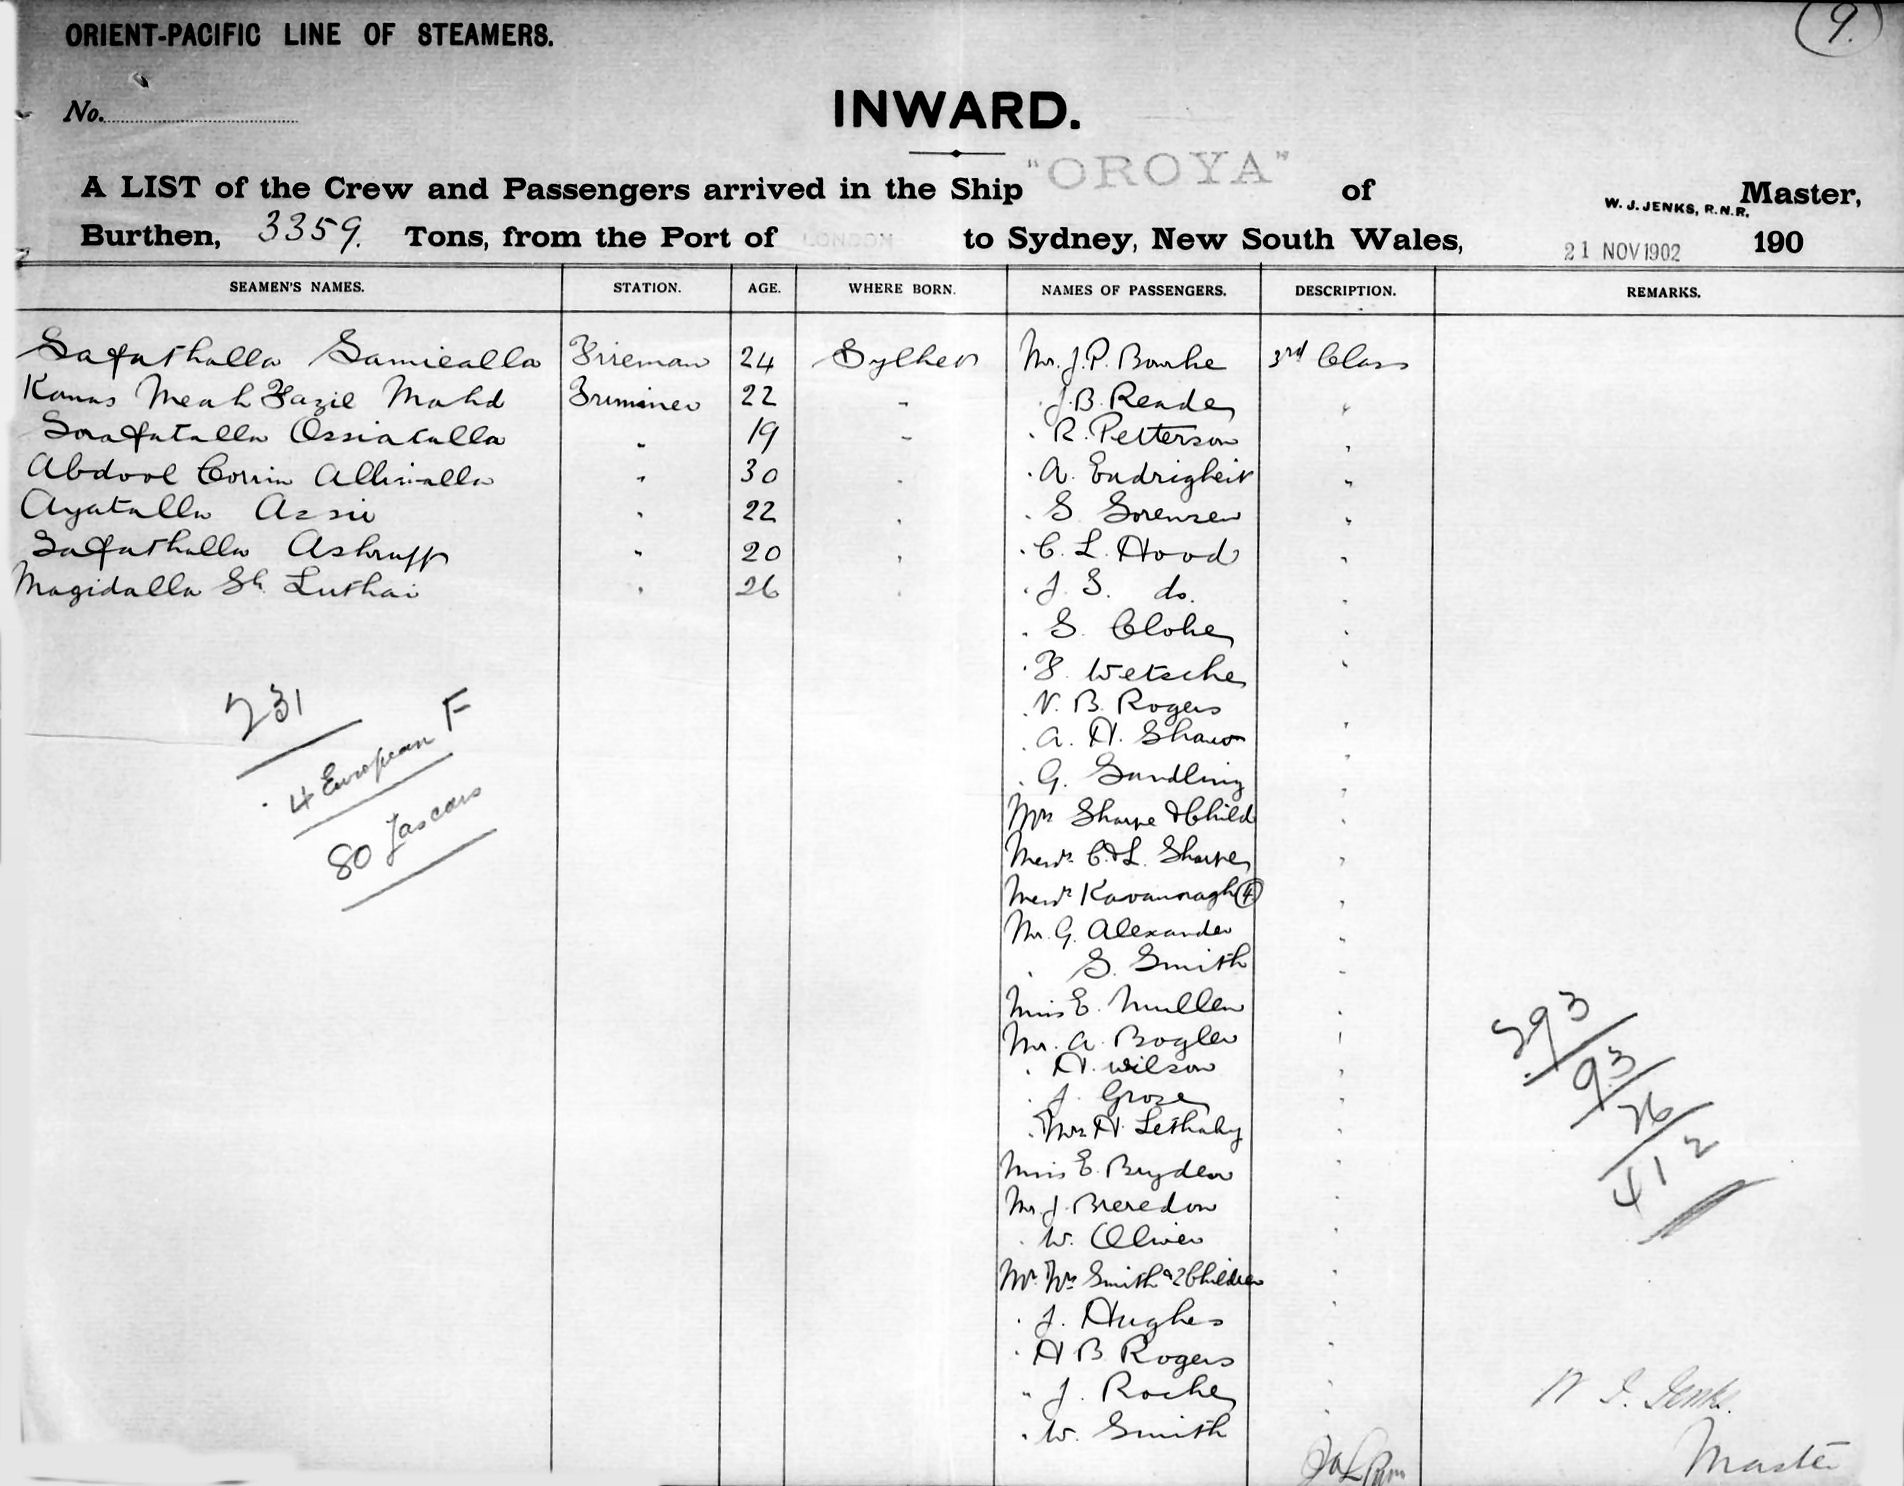 9.
ORIENT-PACIFIC LINE OF STEAMERS.
No.
INWARD.
A LIST of the Crew and Passengers arrived in the Ship "OROYA" of W. J. JENKS, R.N.R. Master,
Burthen, 3359. Tons, from the Port of LONDON to Sydney, New South Wales, 21 NOV 1902 190
SEAMEN'S NAMES. STATION. AGE. WHERE BORN. NAMES OF PASSENGERS. DESCRIPTION. REMARKS.
Safathalla Samiealla Fireman 24 Sylhet Mr. J. P. Bourke 3rd Class
Meah Fazil Mahd Trimmer 22 " . J. B. Reade "
Ossiatulla " 19 " . R. Petterson "
Abdool " 30 " . A. "
Ayatulla " 22 " . S. Sorensen "
Safathulla Ashruff " 20 " . C. L. Hood "
Magidalla Sk. " 26 " . J. S. do. "
. S. Clohe "
. F. Wetsche "
. V. B. Rogers
. A. H. Shaw "
. G. Sandling "
Mrs Sharpe & Child "
C. & L. Sharpe "
Kavannagh (4) "
Mr. G. Alexander "
. S. Smith "
Miss E. Mullen "
Mr. A. Bogler "
. H. Wilson "
. J. Groze "
. Mrs H. Lethaby "
Miss E. Bryden "
Mr J. Breredon "
. W. Oliver "
Mr. Mrs Smith & 2 Children "
. J. Hughes "
. H B Rogers "
" J. Roche "
. W. Smith "
231
4 European F
80 Lascars
293
93
26
412
W. J. Jenks.
Master